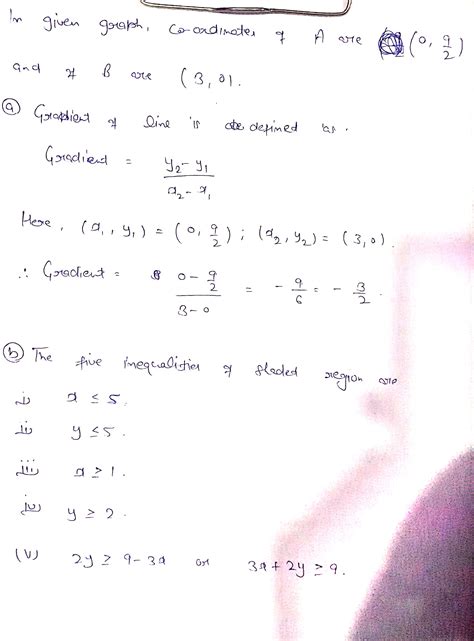 In given graph, co-ordinates of A are (0, 9/2)
and of B are (3, 0).
(a) Gradient of line is defined as.
Gradient = (y₂ - y₁)/(x₂ - x₁)
Here, (x₁, y₁) = (0, 9/2) ; (x₂, y₂) = (3, 0).
∴ Gradient = (0 - 9/2)/(3 - 0) = - 9/6 = - 3/2.
(b) The five inequalities of shaded region are
i) x ≤ 5.
ii) y ≤ 5.
iii) x ≥ 1.
iv) y ≥ 2.
(v) 2y ≥ 9 - 3x or 3x + 2y ≥ 9.